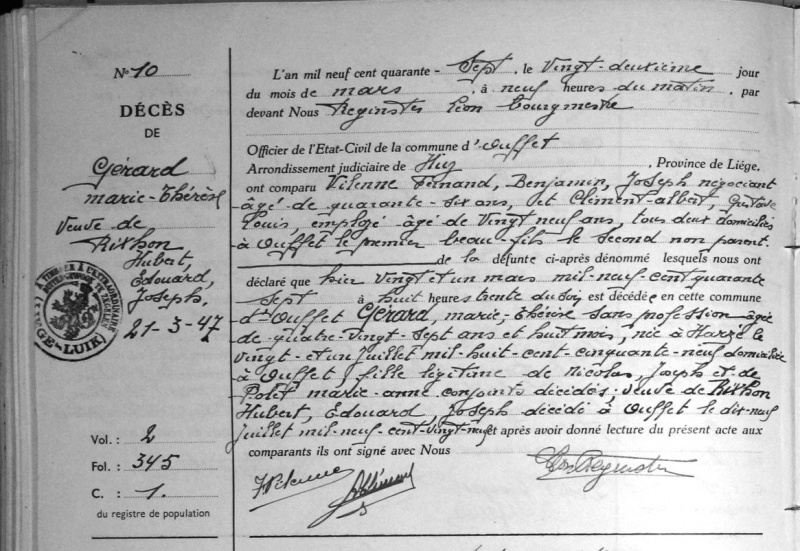 N° 10
DÉCÈS
DE
Gérard
marie-Thérèse
Veuve de
Rithon
Hubert,
Edouard,
Joseph.
21-3-47
Vol. : 2
Fol. : 345
C. : 1.
du registre de population
L'an mil neuf cent quarante - Sept, le Vingt-deuxième jour
du mois de mars, à neuf heures du matin, par
devant Nous Reginster Léon bourgmestre
Officier de l'Etat-Civil de la commune d'Ouffet
Arrondissement judiciaire de Huy, Province de Liége,
ont comparu Vilenne Fernand, Benjamin, Joseph négociant
âgé de quarante-six ans, et Clément-Albert, Gustave
Louis, employé âgé de Vingt neuf ans, tous deux domiciliés
à Ouffet le premier beau-fils le second non parent.
de la défunte ci-après dénommé lesquels nous ont
déclaré que hier vingt et un mars mil-neuf-cent quarante
sept à huit heures trente du soir est décédée en cette commune
d'Ouffet Gérard, marie-Thérèse sans profession âgée
de quatre-vingt-sept ans et huit mois, née à Harzé le
vingt-et-un juillet mil-huit-cent-cinquante-neuf domiciliée
à Ouffet, fille légitime de Nicolas, Joseph et de
Polet marie-anne conjoints décédés; veuve de Rithon
Hubert, Edouard, Joseph décédé à Ouffet le dix-neuf
juillet mil-neuf-cent-vingt-neuf et après avoir donné lecture du présent acte aux
comparants ils ont signé avec Nous
FVilenne
AClément
Léon Reginster